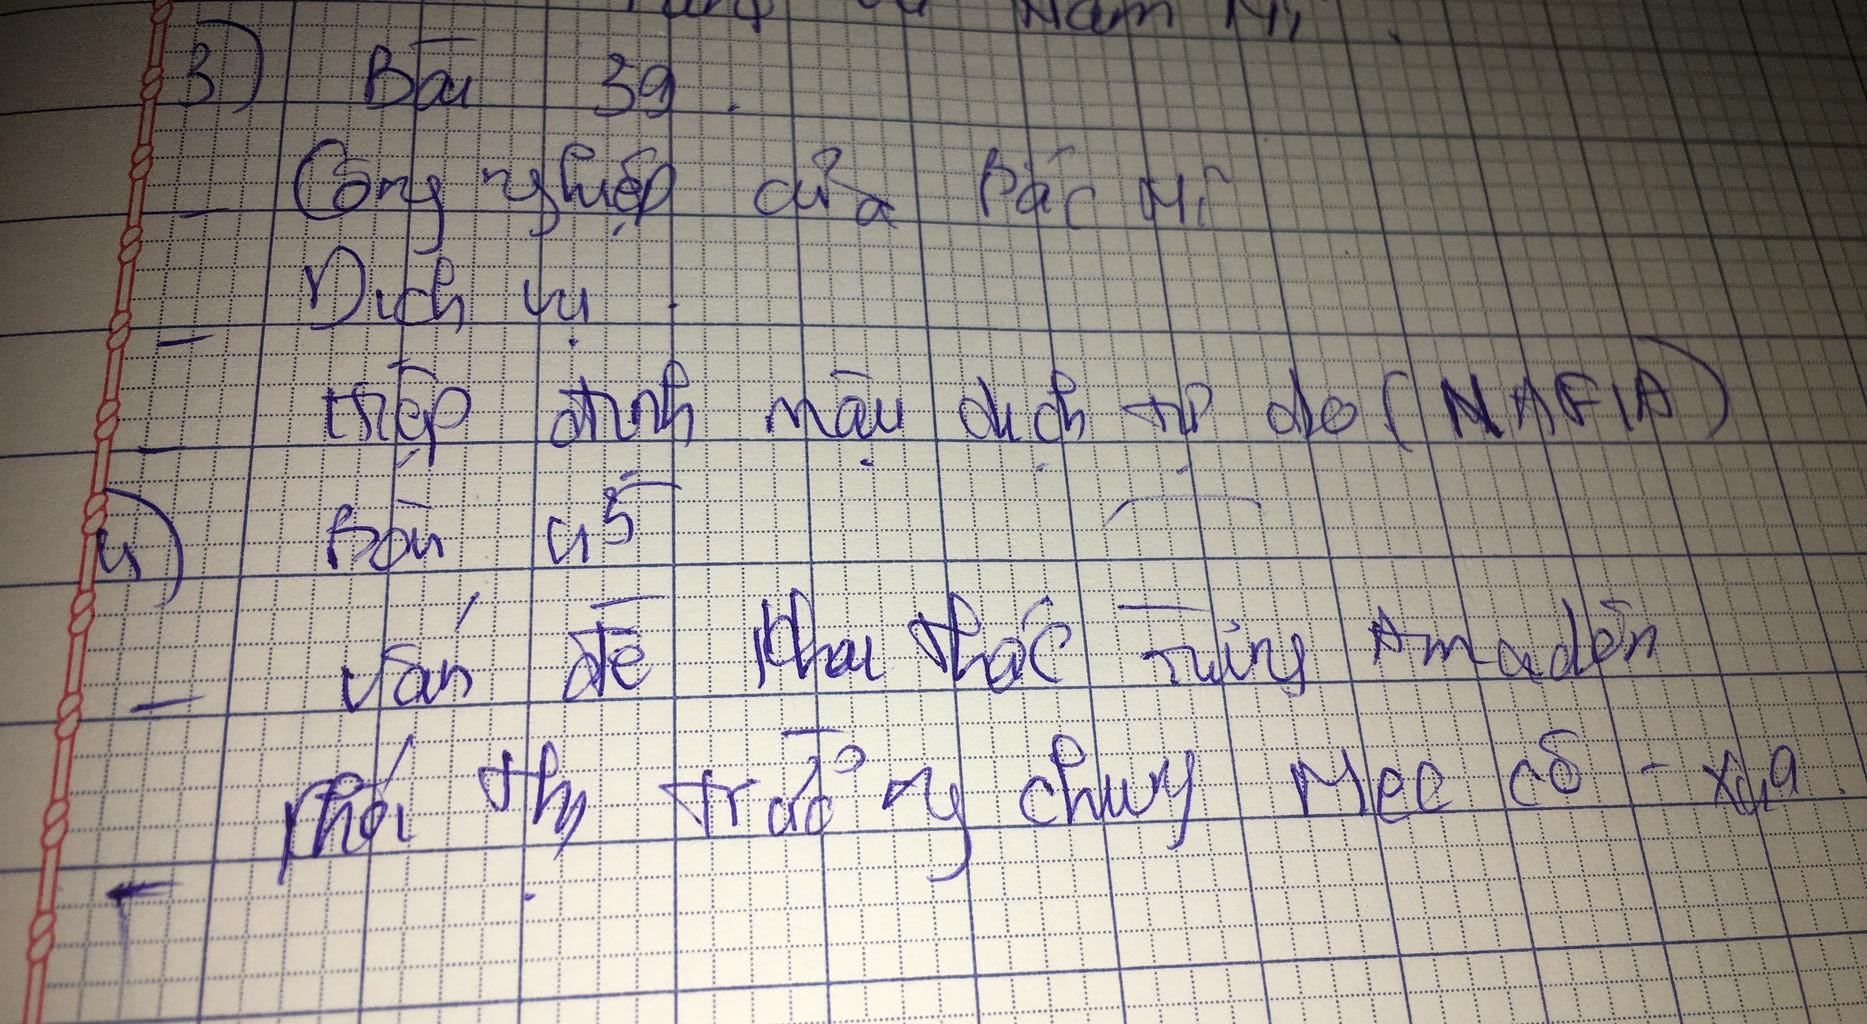 Nam Mĩ.
3) Bài 39.
- Công nghiệp của Bắc Mĩ
- Dịch vụ.
- Hiệp định mậu dịch tự do (NAFTA)
4) Bài 45
- Vấn đề khai thác rừng Amadôn
- Khối thị trường chung Mec cô - xua.